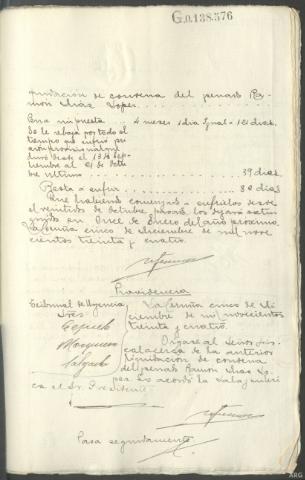 G.0.138.576
Liquidación de condena del penado Ra-
món Díaz López
Pena impuesta 4 meses 1 dia igual = 121 dias.
Se le rebaja por todo el
tiempo que sufrió pri-
sión provisional me-
diante desde el 13 de Sep-
tiembre al 21 de Octu-
bre último 39 dias
Resta a sufrir 82 dias
Que habiendo comenzado a sufrirlos desde
el veintidos de Octubre pasado, los dejará extin-
guidos en once de Enero del año próximo.
La Coruña cinco de Diciembre de mil nove-
cientos treinta y cuatro.
Providencia
Tribunal de Urgencia
Sres
La Coruña cinco de Di-
ciembre de mil novecientos
treinta y cuatro.
Salgado
Oigase al Señor Fis-
cal acerca de la anterior
liquidación de condena
del penado Ramon Diaz Lo-
pez. Lo acordó la Sala y rubri-
ca el Sr. Presidente
Pasa seguidamente
ARG